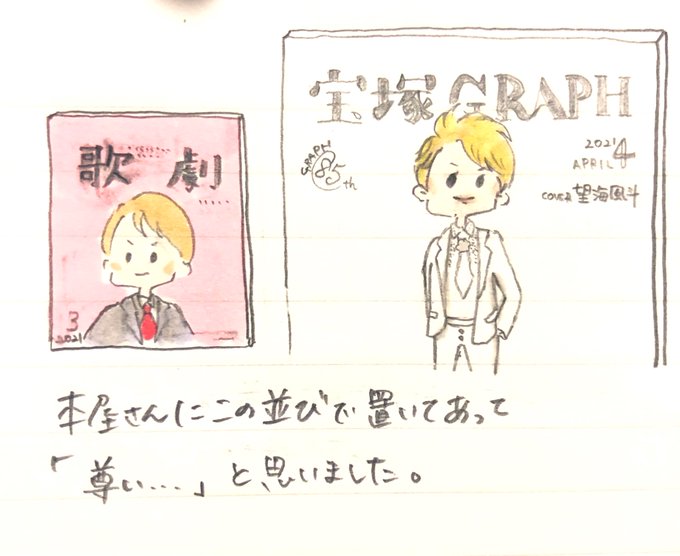 歌劇
3
2021
宝塚GRAPH
GRAPH
85th
2021
APRIL 4
COVER 望海風斗
本屋さんにこの並びで置いてあって
「尊い…」と思いました。